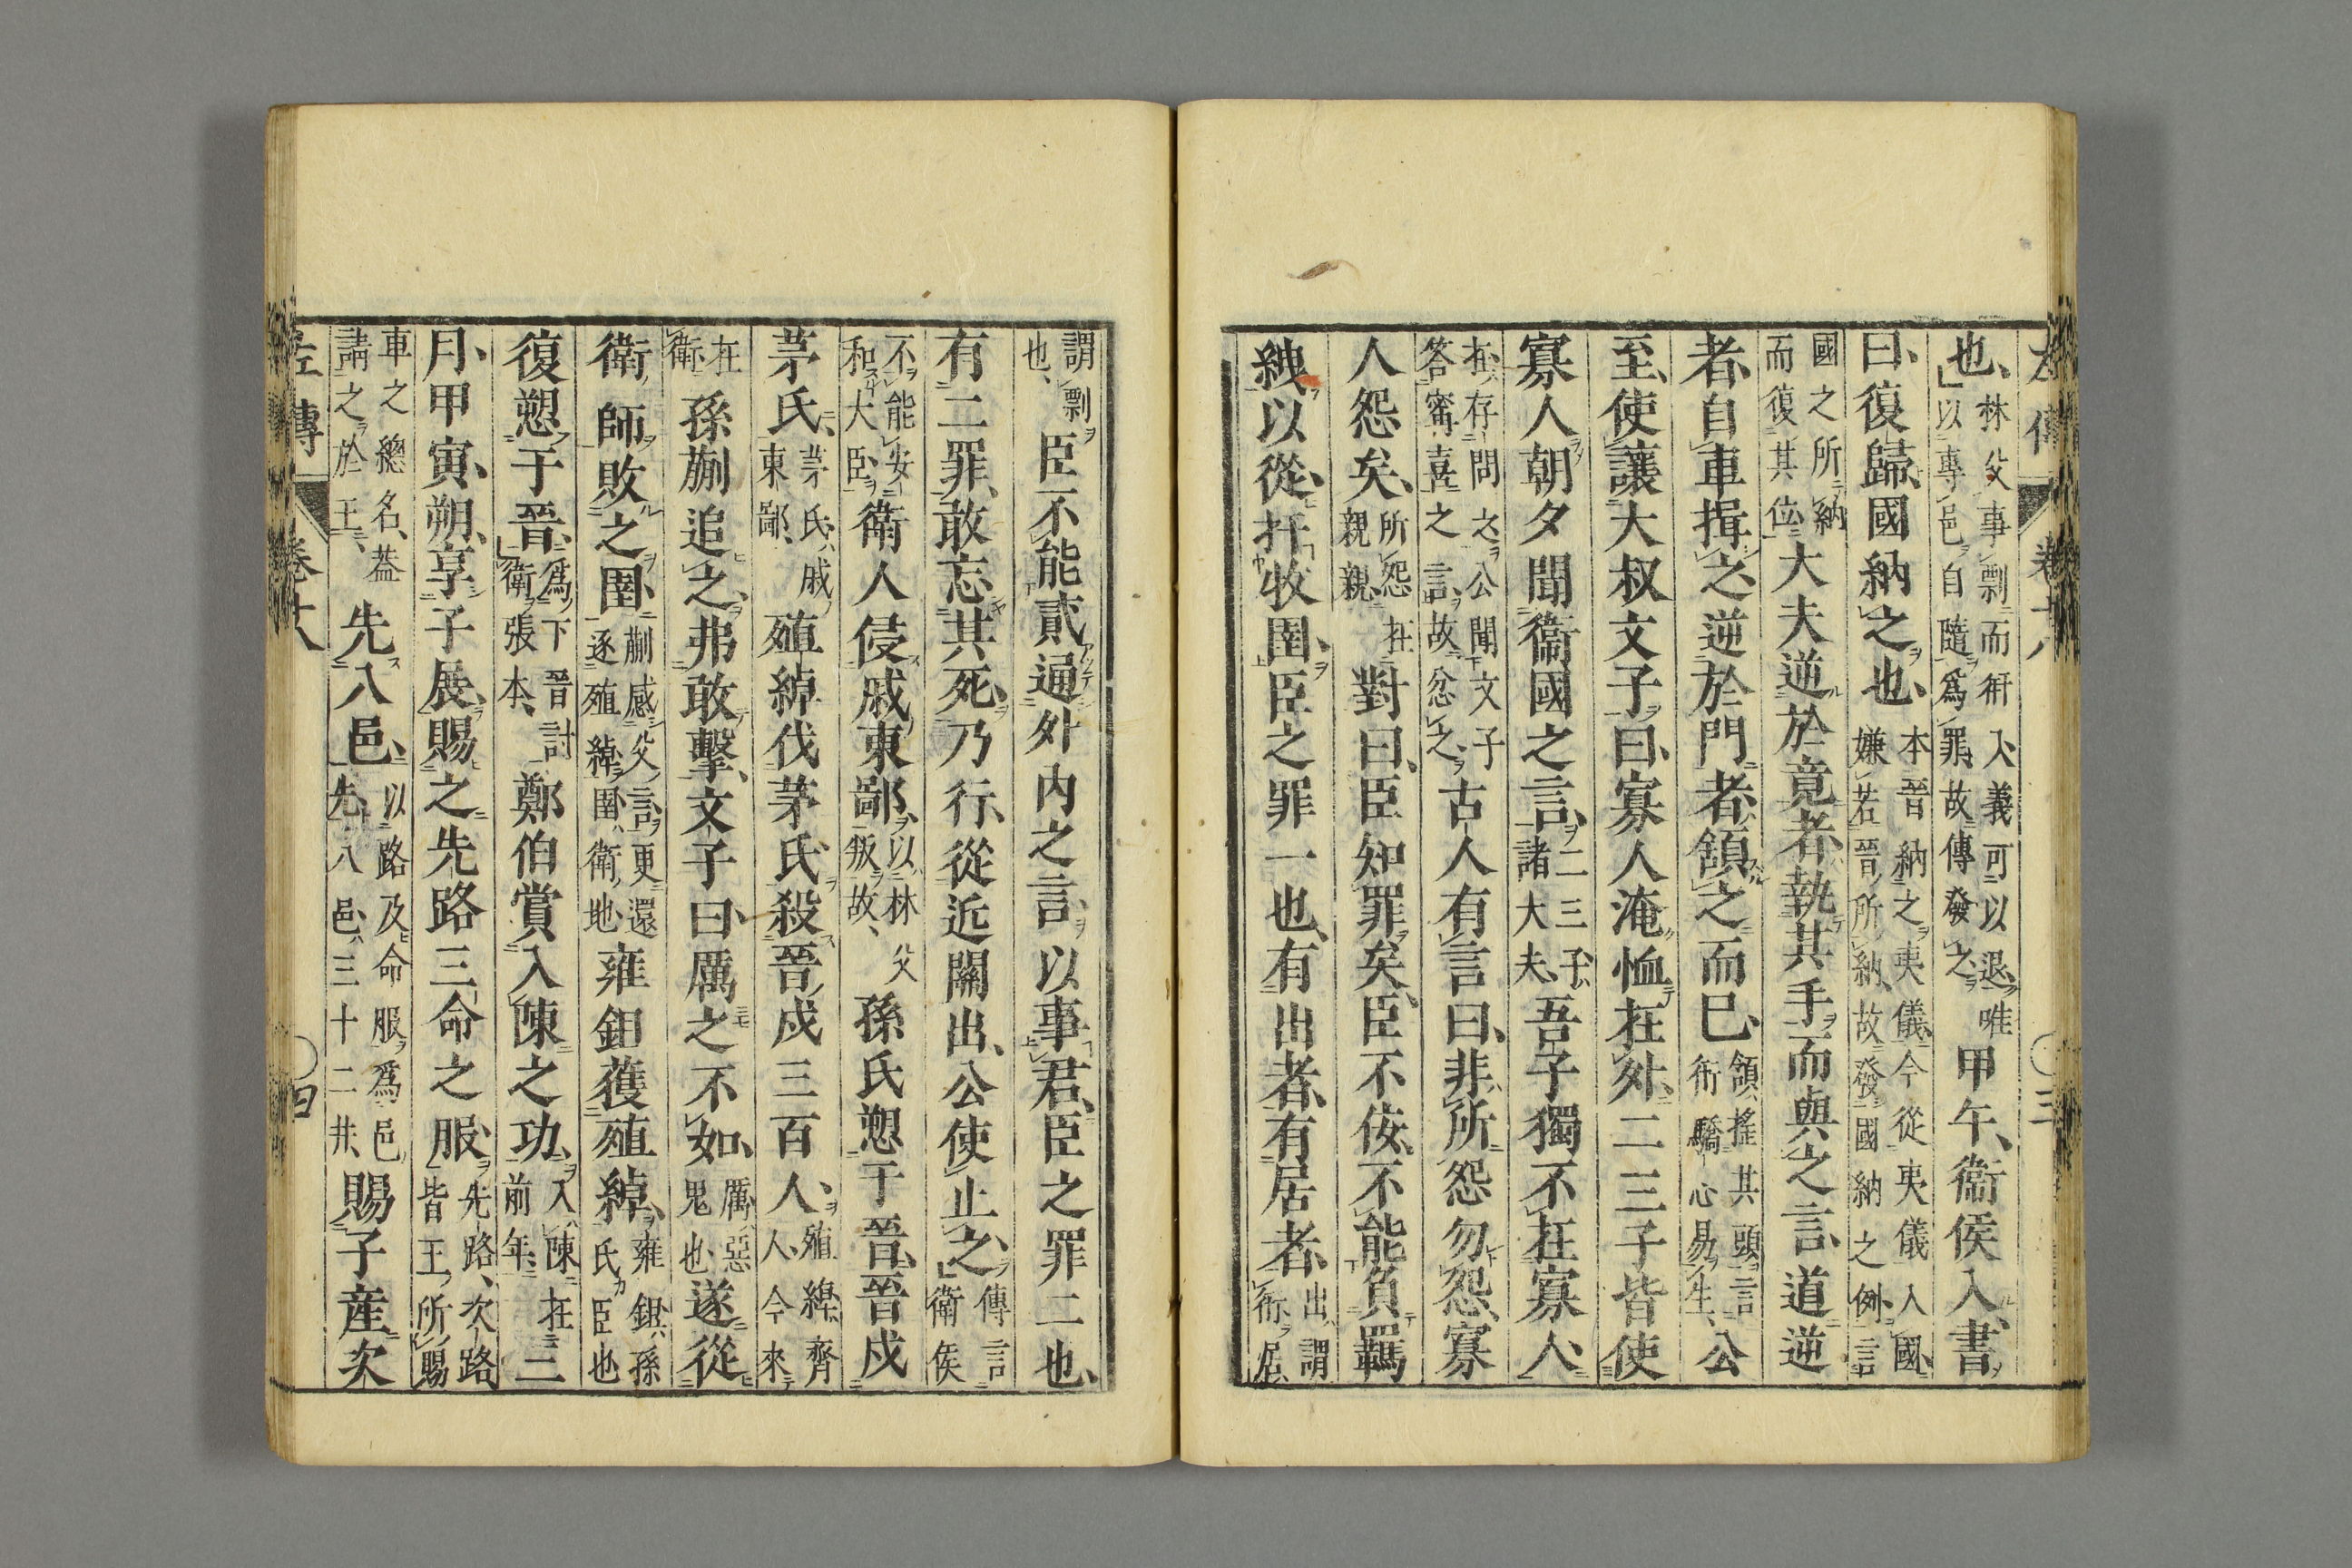 左傳 卷十八 〇三
也、林父事剽而衎入義可以退唯以專邑自隨爲罪故傳發之甲午、衞侯入、書
曰、復歸、國納之也、本晉納之夷儀今從夷儀入國嫌若晉所納故發國納之例言
國之所納而復其位大夫逆於竟者、執其手而與之言、道逆
者、自車揖之、逆於門者、頷之而已、頷搖其頭言衎驕心易生公
至、使讓大叔文子曰、寡人淹恤在外、二三子皆使
寡人朝夕聞衞國之言、二三子諸大夫吾子獨不在寡人、
在存問之公聞文子答甯喜之言故忿之古人有言曰、非所怨勿怨、寡
人怨矣、所怨在親親對曰、臣知罪矣、臣不佞、不能負羈
絏、以從、扞牧圉、臣之罪一也、有出者、有居者、出謂衎居
謂剽也、臣不能貳通外内之言、以事君、臣之罪二也、
有二罪、敢忘其死、乃行、從近關出、公使止之、傳言衞侯
不能安和大臣衞人侵戚東鄙、以林父叛故、孫氏愬于晉、晉戍
茅氏、茅氏戚東鄙殖綽伐茅氏、殺晉戍三百人、殖綽齊人今來
在衞孫蒯追之、弗敢擊、文子曰、厲之不如、厲惡鬼也遂從
衞師、敗之圉、蒯感父言更還逐殖綽圉衞地雍鉏獲殖綽、雍鉏孫氏臣也
復愬于晉、爲下晉討衞張本、鄭伯賞入陳之功、入陳在前年三
月、甲寅、朔、享子展、賜之先路三命之服、先路次路皆王所賜
車之總名蓋請之於王先八邑、以路及命服爲邑先八邑三十二井賜子産次
左傳 卷十八 〇四